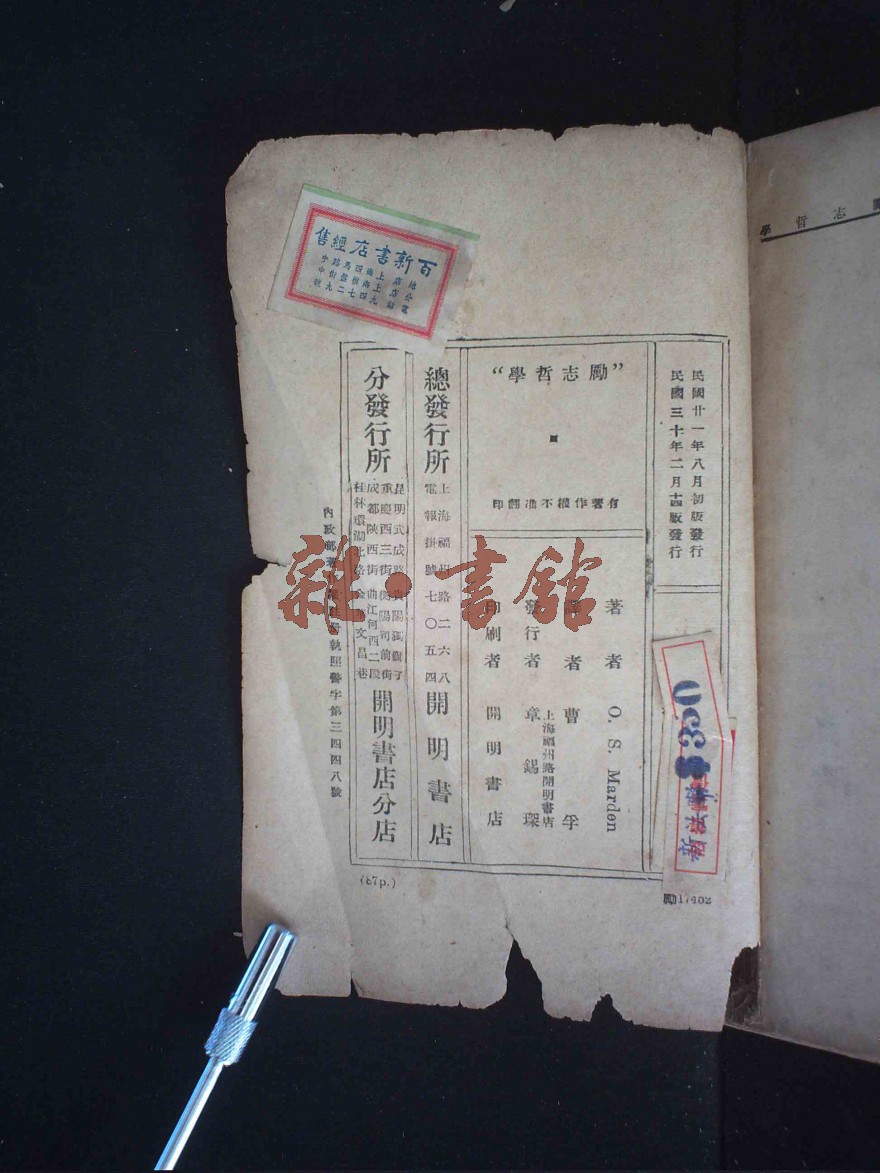 勵志哲學
百新書店經售
民國廿一年八月初版發行
民國三十年二月十四版發行
“勵志哲學”
有著作權不准翻印
著者 O. S. Marden
譯者 曹孚
發行者 章錫琛
上海福州路開明書店
印刷者 開明書店
總發行所
上海福州路二六八
電報掛號七〇五四
開明書店
分發行所
昆明武成路
重慶西三街 衡陽司前街
成都陝西街 曲江河西二段
桂林環湖北路 文昌巷
開明書店分店
執照警字第三四四八號
(87p.)
勵17402
$350
雜·書館